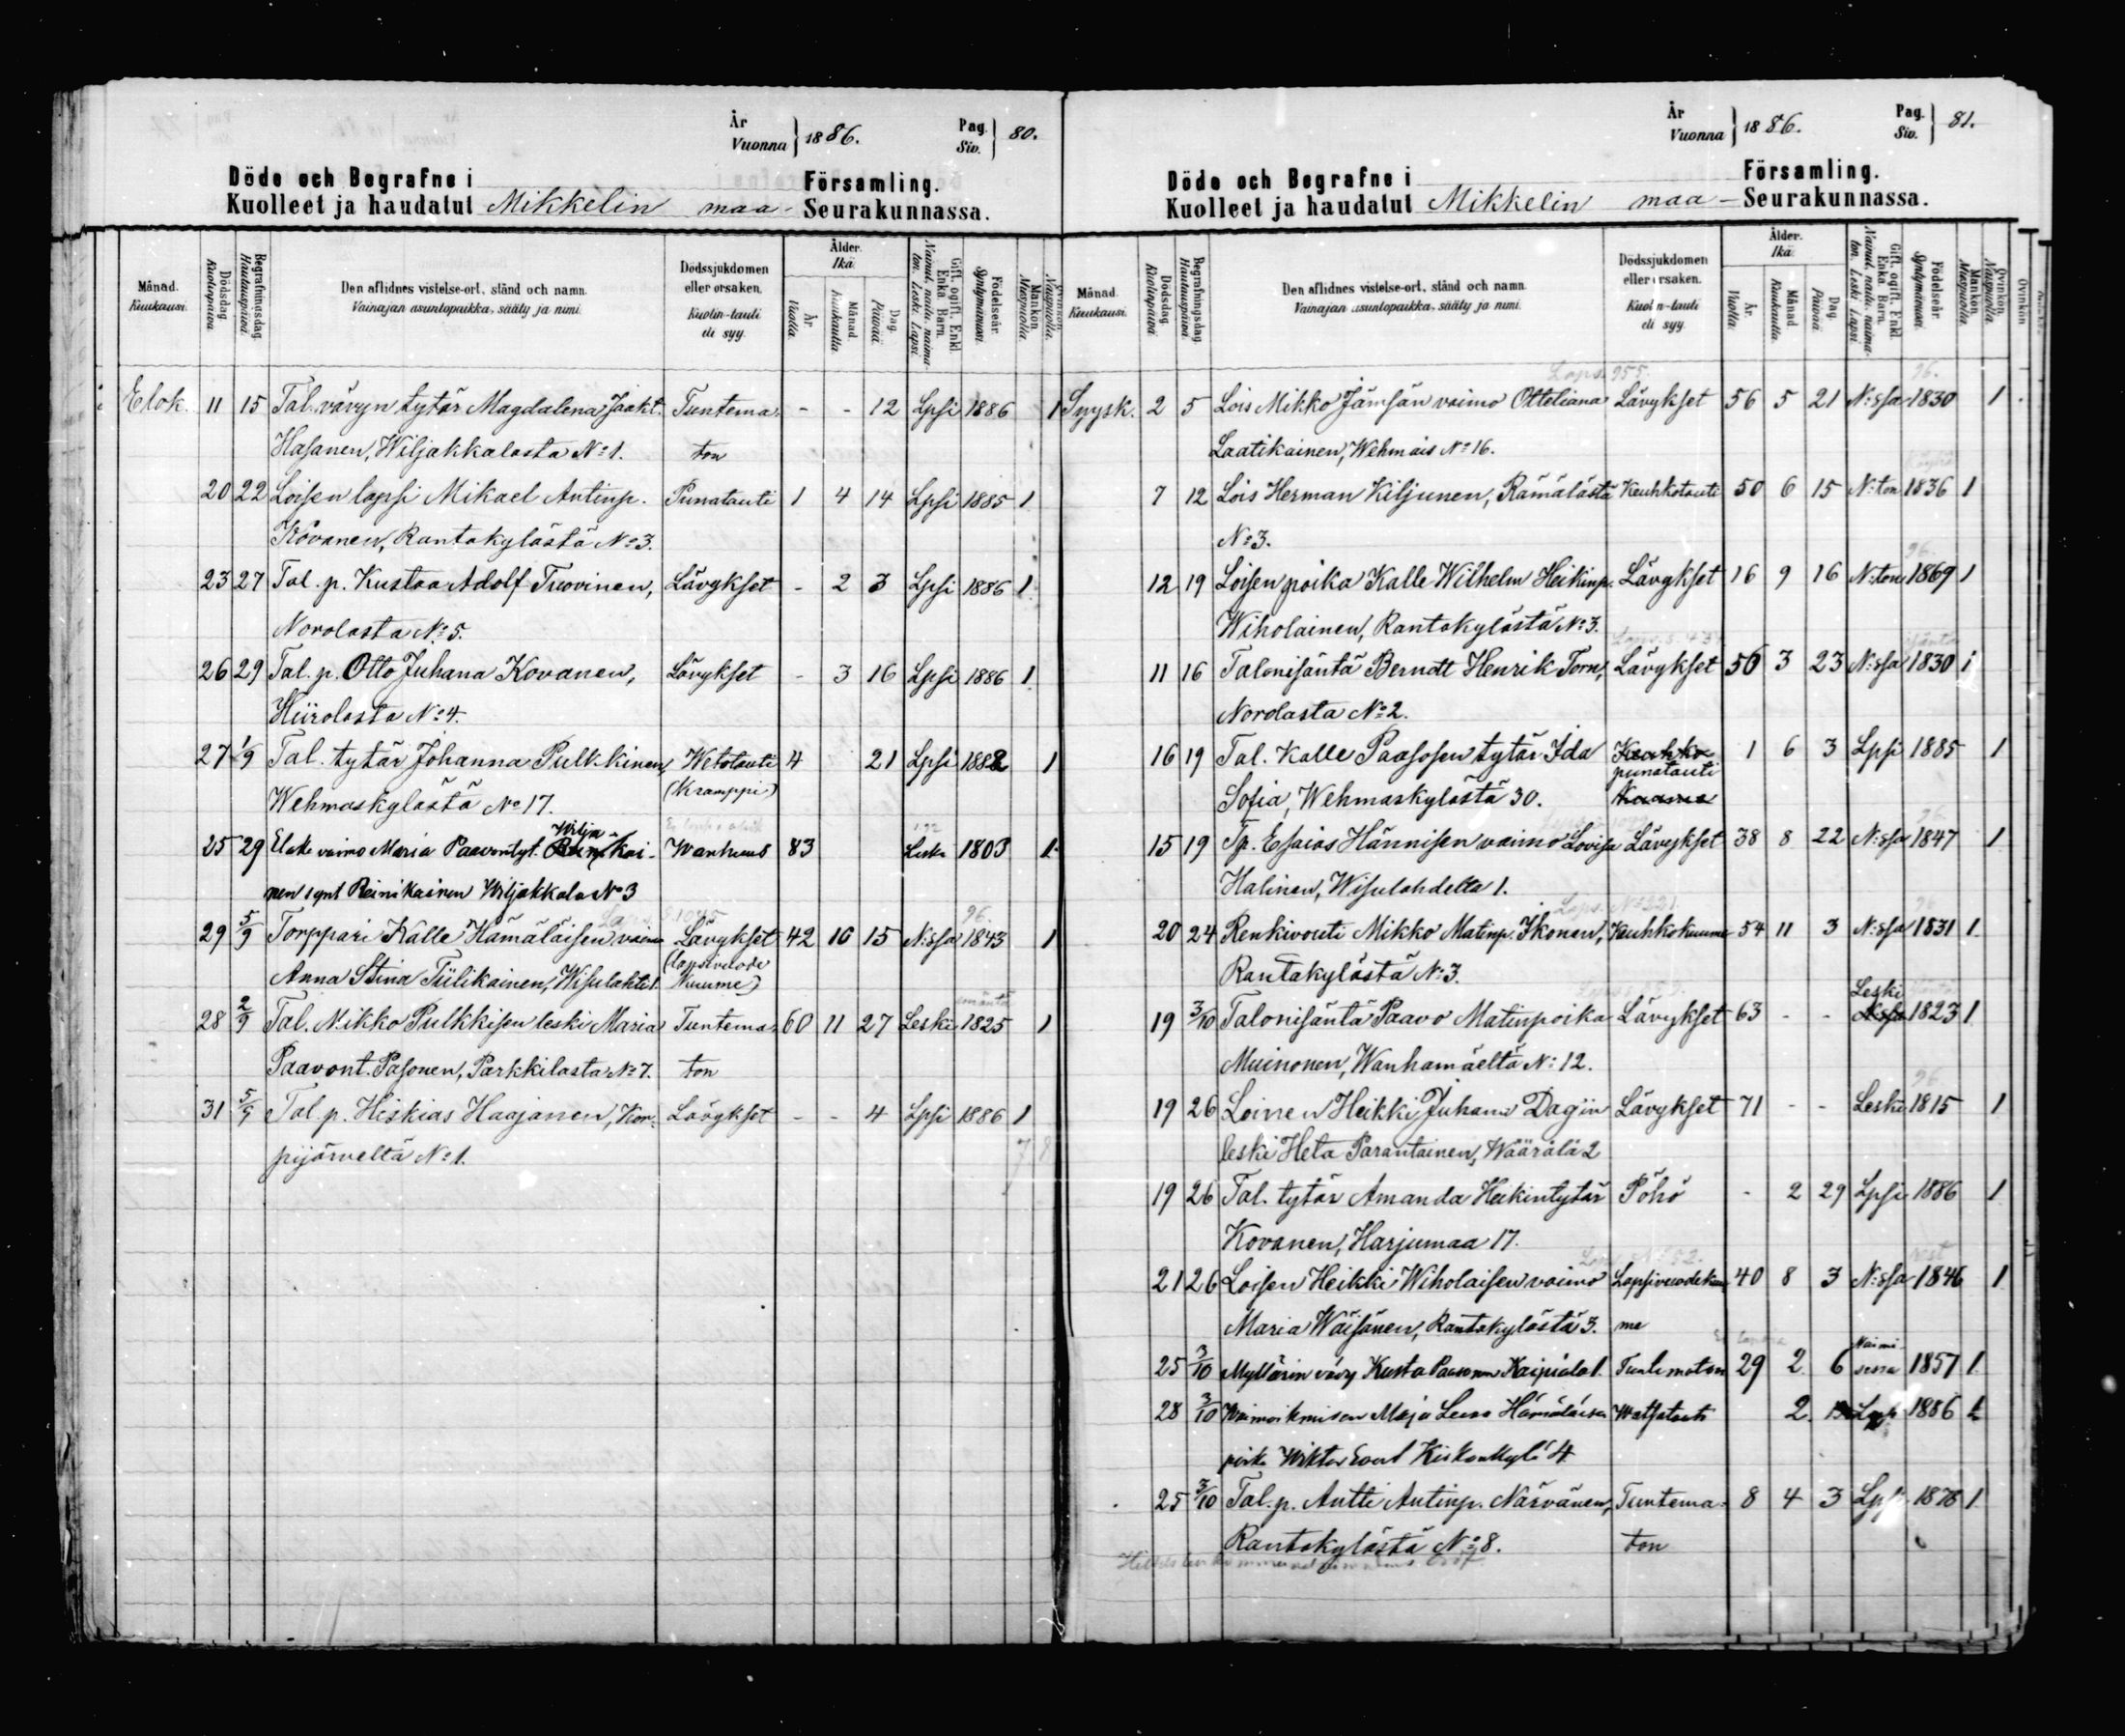 År
Vuonna } 1886.
Pag.
Siv. } 80.
Döde och Begrafne i Församling.
Kuolleet ja haudatut Mikkelin maa- Seurakunnassa.
Månad. Kuukausi.
Dödsdag Kuolinpäivä.
Begrafningsdag. Hautauspäivä.
Den aflidnes vistelse-ort, stånd och namn.
Vainajan asuntopaikka, sääty ja nimi.
Dödssjukdomen eller orsaken.
Kuolin-tauti eli syy.
Ålder. Ikä.
År. Vuotta.
Månad. Kuukautta.
Dag. Päivää.
Gift, ogift, Enkl. Enka. Barn.
Nainut, naitu, naimaton. Leski. Lapsi.
Födelseår. Syntymävuosi.
Mankön. Miespuolia.
Qvinkön. Naispuolia.
Elok. 11 15 Tal. vävyn tytär Magdalena Jaakt. Tuntema- - - 12 Lpsi 1886 1
Hasanen, Wiljakkalasta No 1. ton
20 22 Loisen lapsi Mikael Antinp. Punatauti 1 4 14 Lpsi 1885 1
Kovanen, Rantakylästä No 3.
23 27 Tal. p. Kustaa Adolf Tuovinen, Lävykset - 2 3 Lpsi 1886 1
Norolasta No 5.
26 29 Tal. p. Otto Juhana Kovanen, Lävykset - 3 16 Lpsi 1886 1
Hiirolasta No 4.
27 1/9 Tal. tytär Johanna Pulkkinen, Wetotauti 4 21 Lpsi 1882 1
Wehmaskylästä No 17. (Kramppi)
25 29 vaimo Maria Paavontyt. Wilja kai- Wanhuus 83 Leski 1803 1
nen synt Reinikainen Wiljakkala No 3
29 5/9 Torppari Kalle Hämäläisen vaimo Lävykset 42 10 15 N:ssa 1843 1
Anna Stina Tiilikainen, Wisulahti 1. (lapsivuode kuume)
28 2/9 Tal. Mikko Pulkkisen leski Maria Tuntema- 60 11 27 Leski 1825 1
Paavont. Pasonen, Parkkilasta No 7. ton
31 5/9 Tal. p. Hiskias Haajanen, Kor- Lävykset - - 4 Lpsi 1886 1
pijärveltä No 1.
7 8
År
Vuonna } 1886.
Pag.
Siv. } 81.
Döde och Begrafne i Församling.
Kuolleet ja haudatut Mikkelin maa- Seurakunnassa.
Månad. Kuukausi.
Dödsdag Kuolinpäivä.
Begrafningsdag. Hautauspäivä.
Den aflidnes vistelse-ort, stånd och namn.
Vainajan asuntopaikka, sääty ja nimi.
Dödssjukdomen eller orsaken.
Kuolin-tauti eli syy.
Ålder. Ikä.
År. Vuotta.
Månad. Kuukautta.
Dag. Päivää.
Gift, ogift, Enkl. Enka. Barn.
Nainut, naitu, naimaton. Leski. Lapsi.
Födelseår. Syntymävuosi.
Mankön. Miespuolia.
Qvinkön. Naispuolia.
Syysk. 2 5 Lois Mikko Jämsän vaimo Otteliana Lävykset 56 5 21 N:ssa 1830 1
Laatikainen, Wehmais No 16.
7 12 Lois Herman Kiljunen, Rämälästä Keuhkotauti 50 6 15 N:ton 1836 1
No 3.
12 19 Loisen poika Kalle Wilhelm Heikinp. Lävykset 16 9 16 N:ton 1869 1
Wiholainen, Rantakylästä No 3.
11 16 Talonisäntä Berndt Henrik Torn, Lävykset 56 3 23 N:ssa 1830 1
Norolasta No 2.
16 19 Tal. Kalle Paasosen tytär Ida Keuhko punatauti 1 6 3 Lpsi 1885 1
Sofia, Wehmaskylästä 30. kuume
15 19 Tp. Esaias Hännisen vaimo Lovisa Lävykset 38 8 22 N:ssa 1847 1
Halinen, Wisulahdelta 1.
20 24 Renkivouti Mikko Matinp. Ikonen, Keuhkokuume 54 11 3 N:ssa 1831 1
Rantakylästä No 3.
19 3/10 Talonisäntä Paavo Matinpoika Lävykset 63 - - Leski N:ssa 1823 1
Muinonen, Wanhamäeltä No 12.
19 26 Loinen Heikki Juhana Dagiin Lävykset 71 - - Leski 1815 1
leski Heta Parantainen, Wäärälä 2
19 26 Tal. tytär Amanda Heikintytär Pöhö - 2 29 Lpsi 1886 1
Kovanen, Harjumaa 17.
21 26 Loisen Heikki Wiholaisen vaimo Lapsivuodekuu- 40 8 3 N:ssa 1846 1
Maria Wäisänen, Rantakylästä 3. me
25 3/10 Myllärin vävy Kusta Paasonen Kaipiala 1. Tuntematon 29 2 6 Naimi- sessa 1857 1
28 3/10 Waimoihmisen Maja Leena Hämäläisen Watsatauti 2 Lpsi 1886 1
poika Wiktor Evert Kiskonkylä 4
25 3/10 Tal. p. Antti Antinp. Närvänen, Tuntema- 8 4 3 Lpsi 1878 1
Rantakylästä No 8. ton